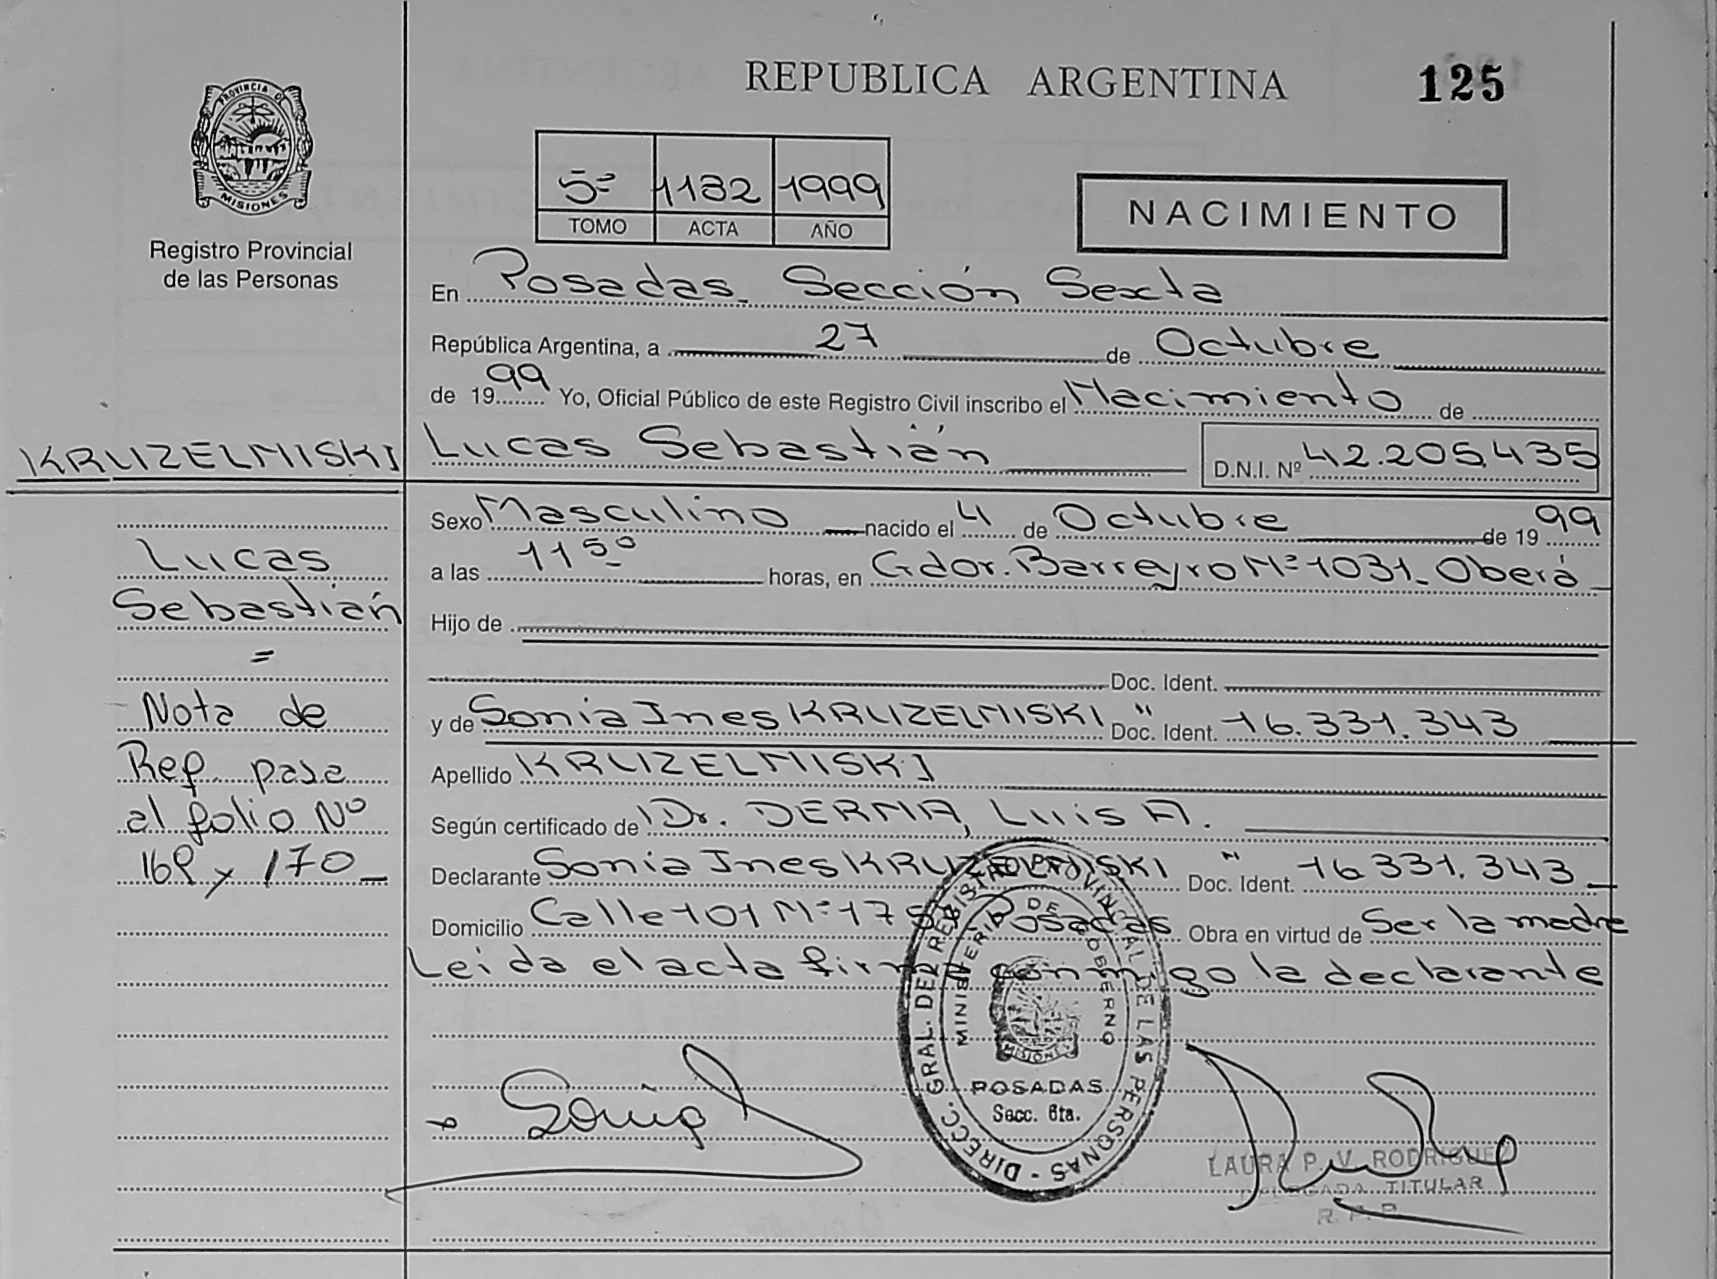 REPUBLICA ARGENTINA 125
PROVINCIA DE
MISIONES
Registro Provincial
de las Personas
5º 1132 1999
TOMO ACTA AÑO
NACIMIENTO
En Posadas. Sección Sexta
República Argentina, a 27 de Octubre
de 1999 Yo, Oficial Público de este Registro Civil inscribo el Nacimiento de
KRUZELNISKI Lucas Sebastián D.N.I. Nº 42.205.435
Sexo Masculino nacido el 4 de Octubre de 1999
a las 11 50 horas, en Gdor. Barreyro Nº 1031. Oberá
Hijo de
Doc. Ident.
y de Sonia Ines KRUZELNISKI Doc. Ident. " 16.331.343
Apellido KRUZELNISKI
Según certificado de Dr. DERNA, Luis A.
Declarante Sonia Ines KRUZELNISKI Doc. Ident. " 16 331.343
Domicilio Calle 101 Nº Posadas Obra en virtud de Ser la madre
Leida el acta firma conmigo la declarante
Lucas
Sebastián
=
Nota de
Ref. pasa
al folio Nº
169 y 170
DIRECC. GRAL. DEL REGISTRO PROVINCIAL DE LAS PERSONAS
MINISTERIO DE GOBIERNO
MISIONES
POSADAS
Secc. 6ta.
LAURA P. V. RODRIGUEZ
DELEGADA TITULAR
R. P. P.